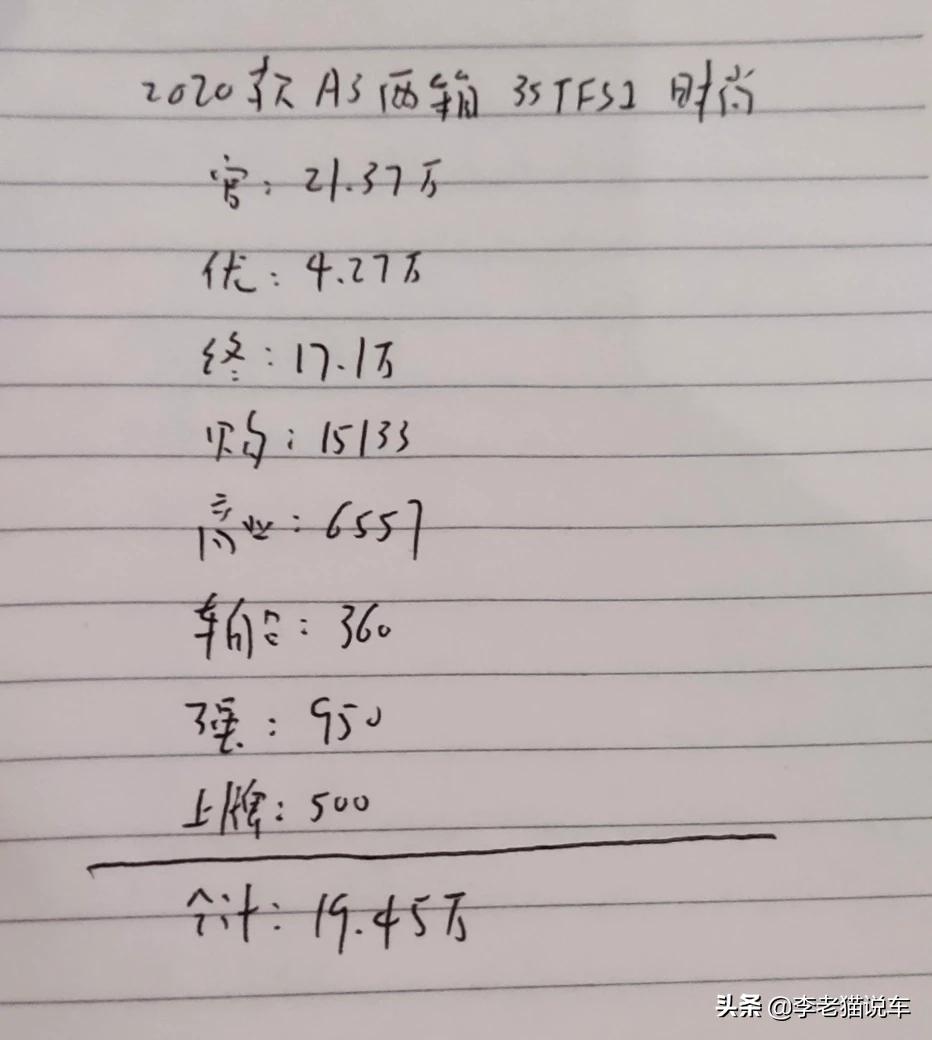 2020款 A3两箱 35TFSI 时尚
官：21.37万
优：4.27万
终：17.1万
购：15133
商业：6557
车船：360
强：950
上牌：500
合计：19.45万
头条 @李老猫说车